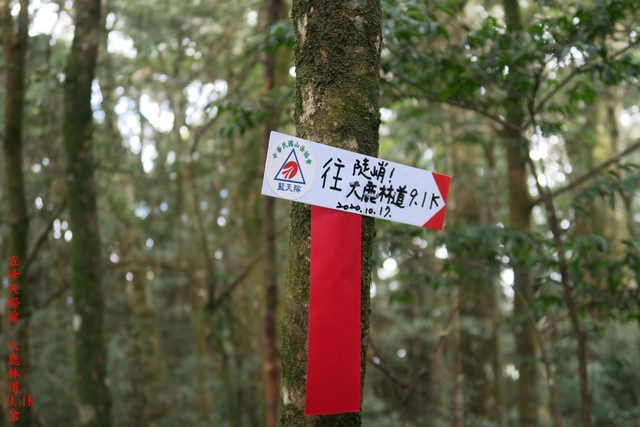 中華民國山岳協會
藍天隊
往 陡峭!
大鹿林道9.1K
2020.10.17.
五峰天際線-大鹿林道9.1K會